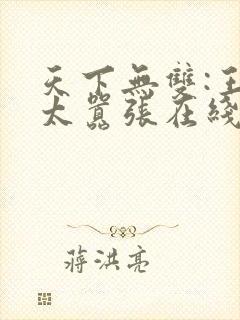 天下無雙:王
太囂張在綫
蔣洪亮